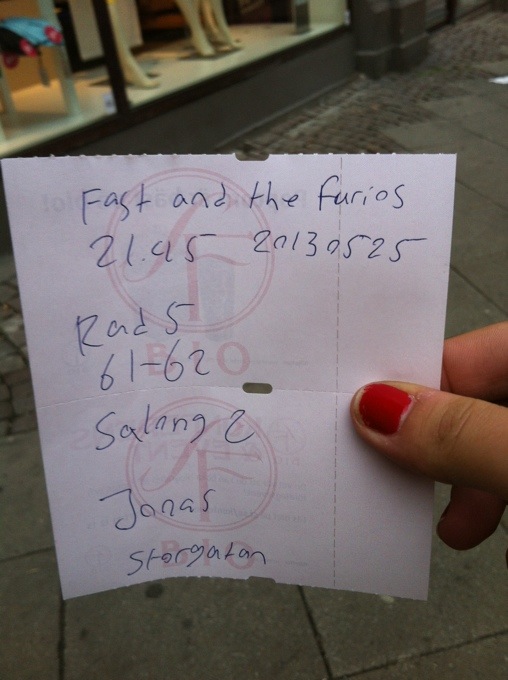 Fast and the furios
21.45 20130525
Rad 5
61-62
Salong 2
Jonas
Storgatan